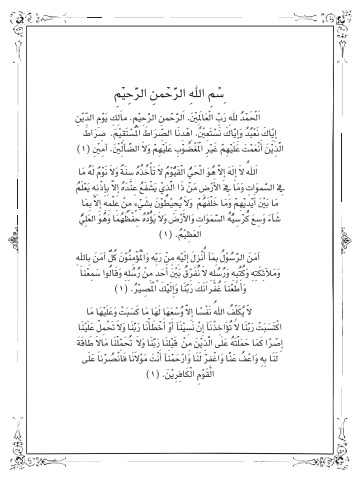 بِسْمِ اللهِ الرَّحْمنِ الرَّحِيْمِ
اَلْحَمْدُ للهِ رَبِّ الْعَالَمِيْنَ. اَلرَّحْمنِ الرَّحِيْمِ. مَالِكِ يَوْمِ الدِّيْنِ
إِيَّاكَ نَعْبُدُ وَإِيَّاكَ نَسْتَعِيْنُ. اِهْدِنَا الصِّرَاطَ الْمُسْتَقِيْمَ. صِرَاطَ
الَّذِيْنَ أَنْعَمْتَ عَلَيْهِمْ غَيْرِ الْمَغْضُوْبِ عَلَيْهِمْ وَلاَ الضَّالِّيْنَ. آمِيْنَ (١)
اَللهُ لاَ إِلَهَ إِلاَّ هُوَ الْحَيُّ الْقَيُّوْمُ لاَ تَأْخُذُهُ سِنَةٌ وَلاَ نَوْمٌ لَهُ مَا
فِي السَّمَوَاتِ وَمَا فِي الأَرْضِ مَنْ ذَا الَّذِيْ يَشْفَعُ عِنْدَهُ إِلاَّ بِإِذْنِهِ يَعْلَمُ
مَا بَيْنَ أَيْدِيْهِمْ وَمَا خَلْفَهُمْ وَلاَ يُحِيْطُوْنَ بِشَيْءٍ مِنْ عِلْمِهِ إِلاَّ بِمَا
شَاءَ وَسِعَ كُرْسِيُّهُ السَّمَوَاتِ وَالأَرْضَ وَلاَ يَؤُدُهُ حِفْظُهُمَا وَهُوَ الْعَلِيُّ
الْعَظِيْمُ. (١)
آمَنَ الرَّسُوْلُ بِمَا أُنْزِلَ إِلَيْهِ مِنْ رَبِّهِ وَالْمُؤْمِنُوْنَ كُلٌّ آمَنَ بِاللهِ
وَمَلاَئِكَتِهِ وَكُتُبِهِ وَرُسُلِهِ لاَ نُفَرِّقُ بَيْنَ أَحَدٍ مِنْ رُسُلِهِ وَقَالُوا سَمِعْنَا
وَأَطَعْنَا غُفْرَانَكَ رَبَّنَا وَإِلَيْكَ الْمَصِيْرُ. (١)
لاَ يُكَلِّفُ اللهُ نَفْسًا إِلاَّ وُسْعَهَا لَهَا مَا كَسَبَتْ وَعَلَيْهَا مَا
اكْتَسَبَتْ رَبَّنَا لاَ تُؤَاخِذْنَا إِنْ نَسِيْنَا أَوْ أَخْطَأْنَا رَبَّنَا وَلاَ تَحْمِلْ عَلَيْنَا
إِصْرًا كَمَا حَمَلْتَهُ عَلَى الَّذِيْنَ مِنْ قَبْلِنَا رَبَّنَا وَلاَ تُحَمِّلْنَا مَالاَ طَاقَةَ
لَنَا بِهِ وَاعْفُ عَنَّا وَاغْفِرْ لَنَا وَارْحَمْنَا أَنْتَ مَوْلاَنَا فَانْصُرْنَا عَلَى
الْقَوْمِ الْكَافِرِيْنَ. (١)